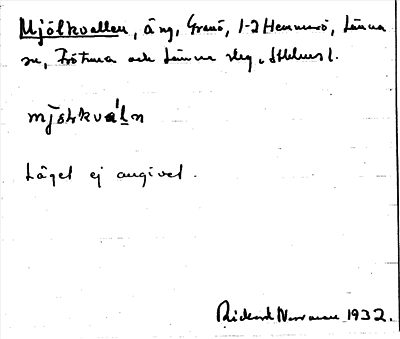 Mjölkvallen, äng, Granö, 1-2 Hemmarö, Länna
sn, Frötuna och Länna slg, Sthlms l.
mjölkvalṇ
Läget ej angivet.
Rickard Norrman 1932.